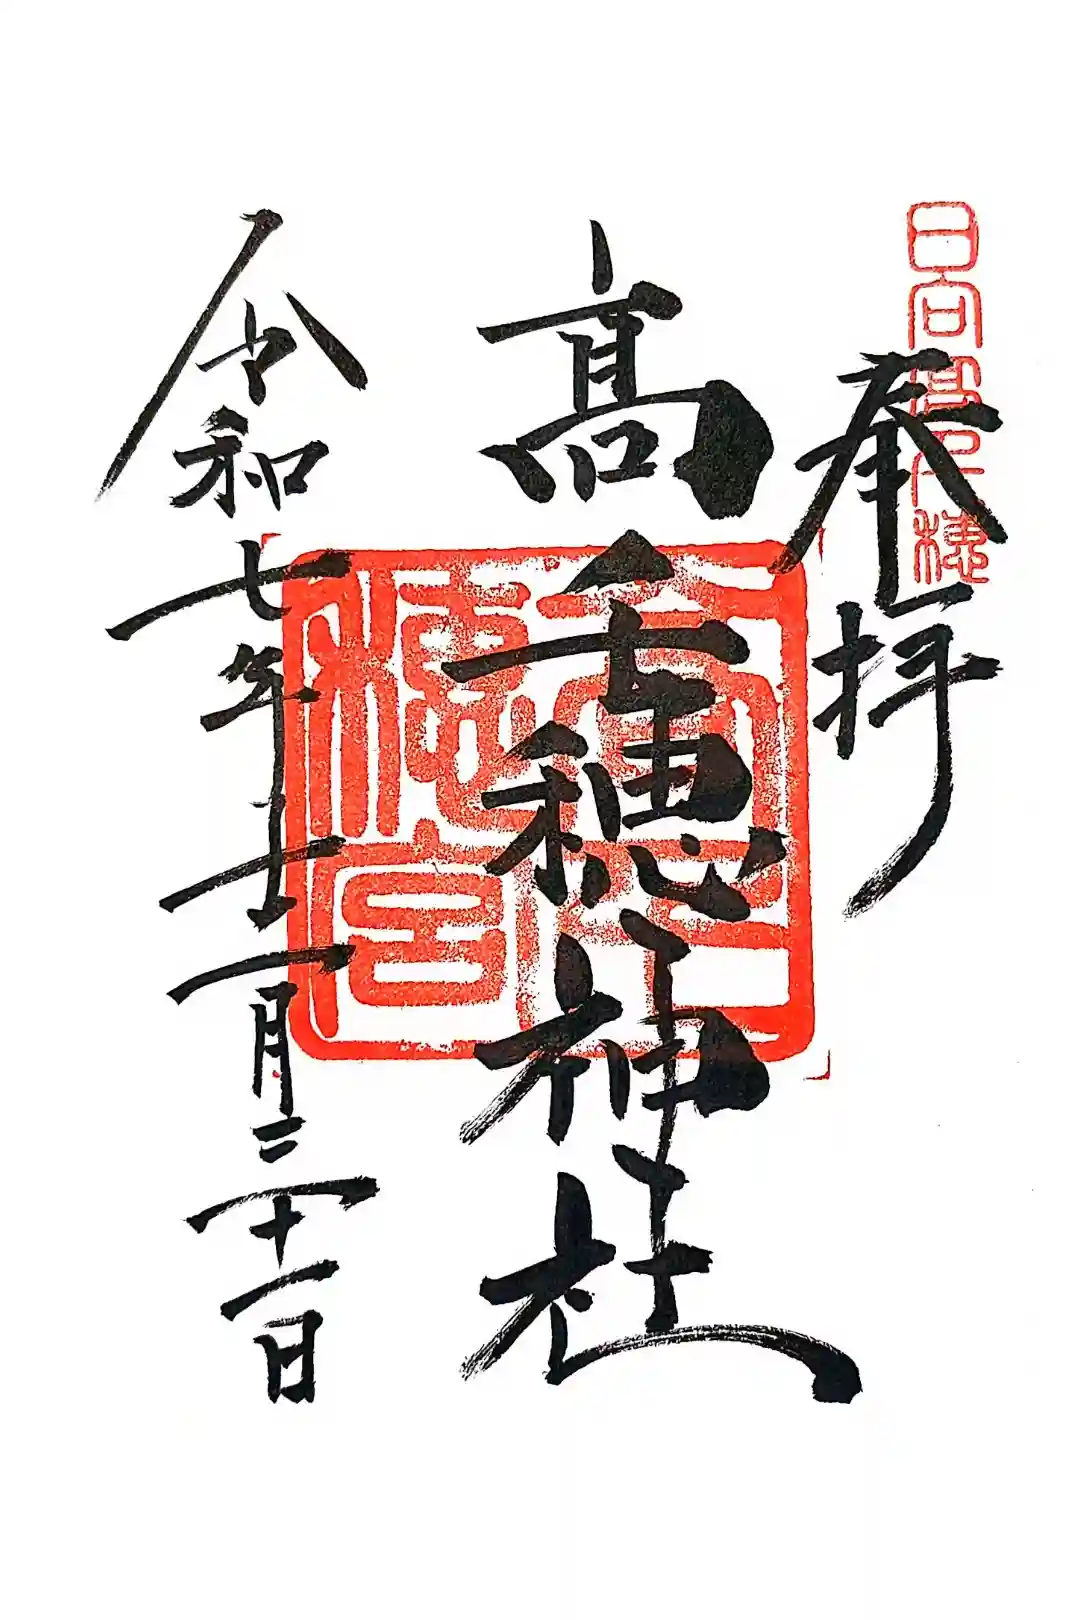 日向高千穂
奉拝
髙千穂神社
高千穂宮
令和七年十二月三十一日